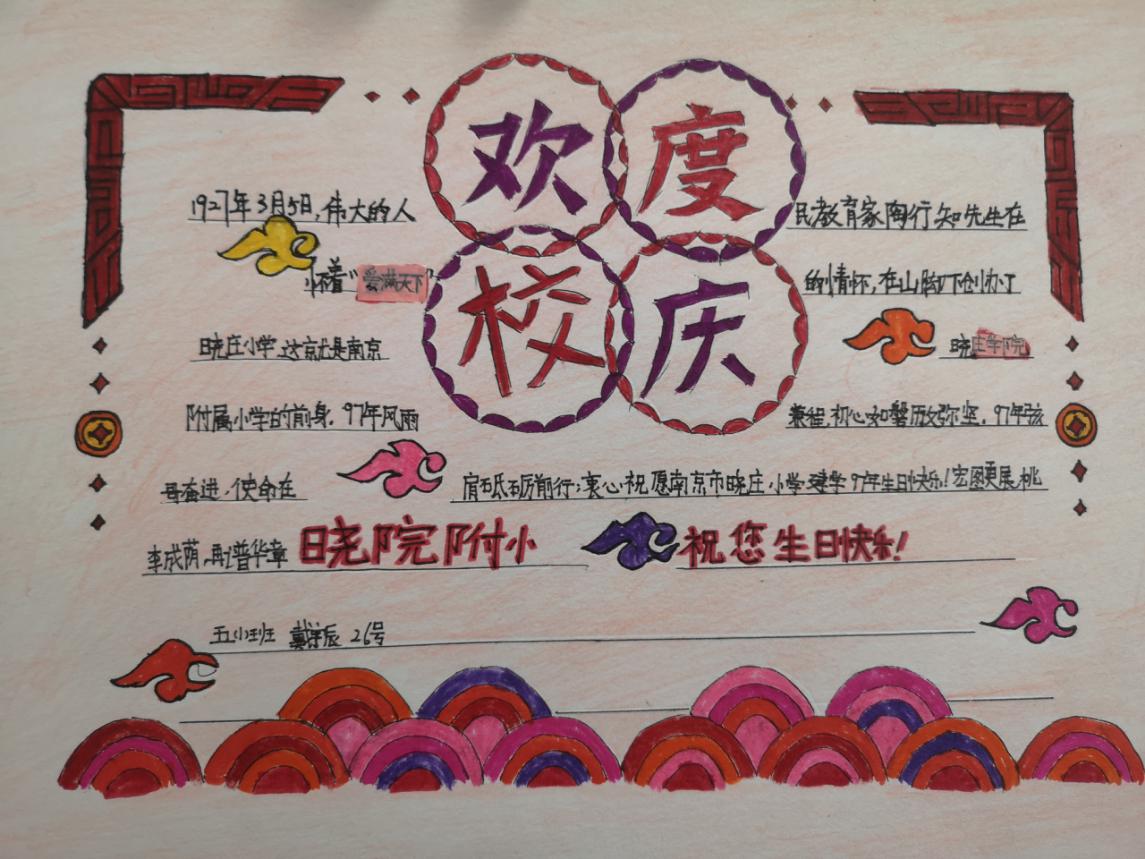 欢度
校庆
1927年3月5日,伟大的人民教育家陶行知先生在
怀着"爱满天下"的情怀,在山脚下创办了
晓庄小学这就是南京晓庄学院
附属小学的前身.97年风雨兼程,初心如磐历久弥坚.97年孩
哥奋进,使命在肩砥砺前行;衷心祝愿南京市晓庄小学建学97年生日快乐!宏图更展,桃
李成荫,再谱华章 晓院附小 祝您生日快乐!
五(1)班 戴宇辰 26号